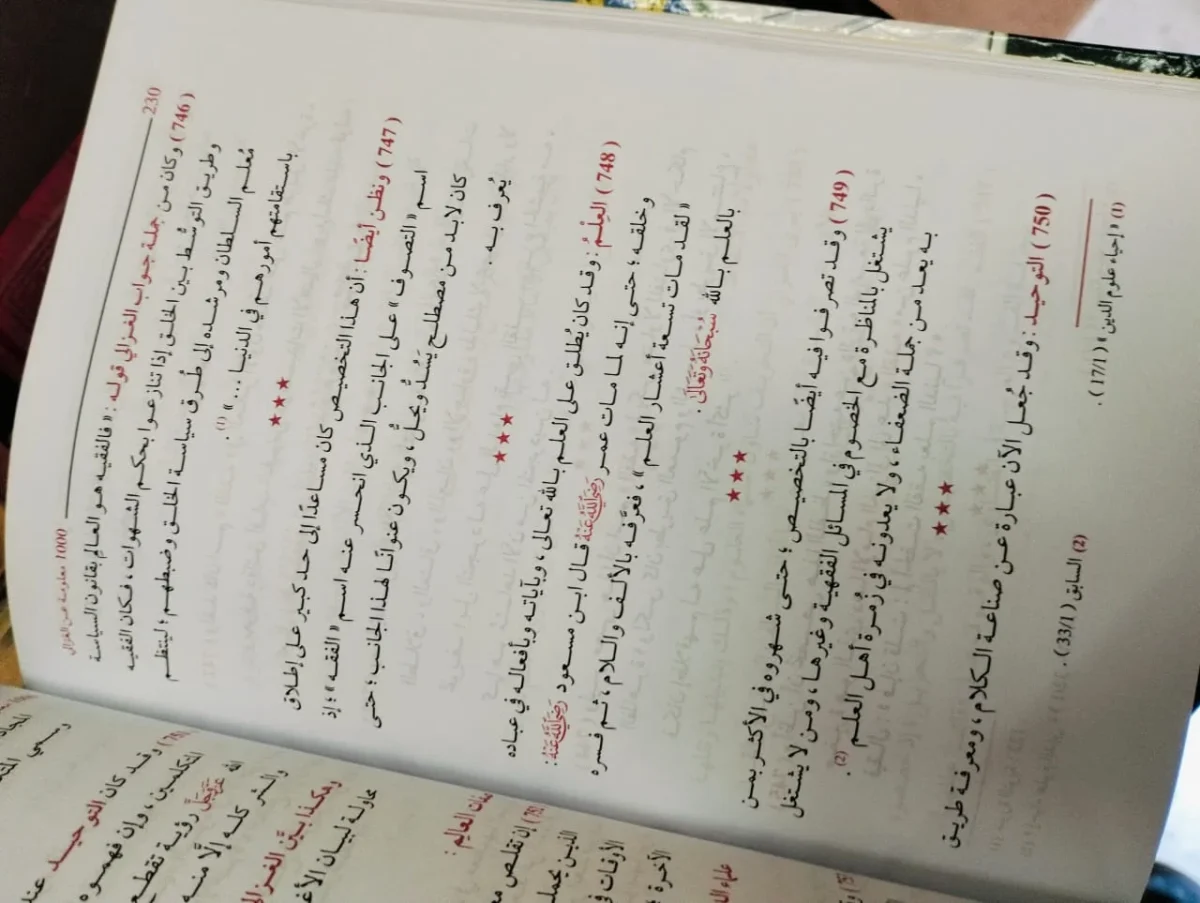 230
1000 معلومة عن الغزالي
(746) وكان من جملة جواب الغزالي قوله : «فالفقيه هو العالم بقانون السياسة
وطريق التوسُّط بين الخلق إذا تنازعوا بحكم الشهوات ، فكان الفقيه
مُعلم السلطان ومرشده إلى طُرق سياسة الخلق وضبطهم ؛ لينتظم
باستقامتهم أمورهم في الدنيا ...» (1) .
★★★
(747) ونظن أيضًا : أن هذا التخصيص كان مساعدًا إلى حد كبير على إطلاق
اسم «التصوف» على الجانب الذي انحسر عنه اسم «الفقه» ؛ إذ
كان لابد من مصطلح يَسُدُّ ويحلُّ ، ويكون عنوانًا لهذا الجانب ؛ حتى
يُعرف به .
★★★
(748) العِلْمُ : وقد كان يُطلق على العلم بالله تعالى ، وبآياته وبأفعاله في عباده
وخلقه ؛ حتى إنه لما مات عمر رَضِيَ اللَّهُ عَنْهُ قال ابن مسعود رَضِيَ اللَّهُ عَنْهُ :
«لقد مات تسعة أعشار العلم» ، فعرَّفه بالألف واللام ، ثم فسره
بالعلم بالله سُبْحَانَهُ وَتَعَالَى .
★★★
(749) وقد تصرفوا فيه أيضًا بالتخصيص ؛ حتى شهروه في الأكثر بمن
يشتغل بالمناظرة مع الخصوم في المسائل الفقهية وغيرها ، ومن لا يشتغل
به يعد من جملة الضعفاء ، ولا يعدونه في زُمرة أهل العلم (2) .
★★★
(750) التوحيد : وقد جُعل الآن عبارة عن صناعة الكلام ، ومعرفة طريق
(1) «إحياء علوم الدين» (17/1) .
(2) السابق (33/1) .
وقد كان التوحيد عند
المتكلمين ، وإن فهموه
الله عَزَّوَجَلَّ رؤية تقطع
والشر كله إلَّا منه
وهكذا بيَّن الغزالي
محاولة لبيان